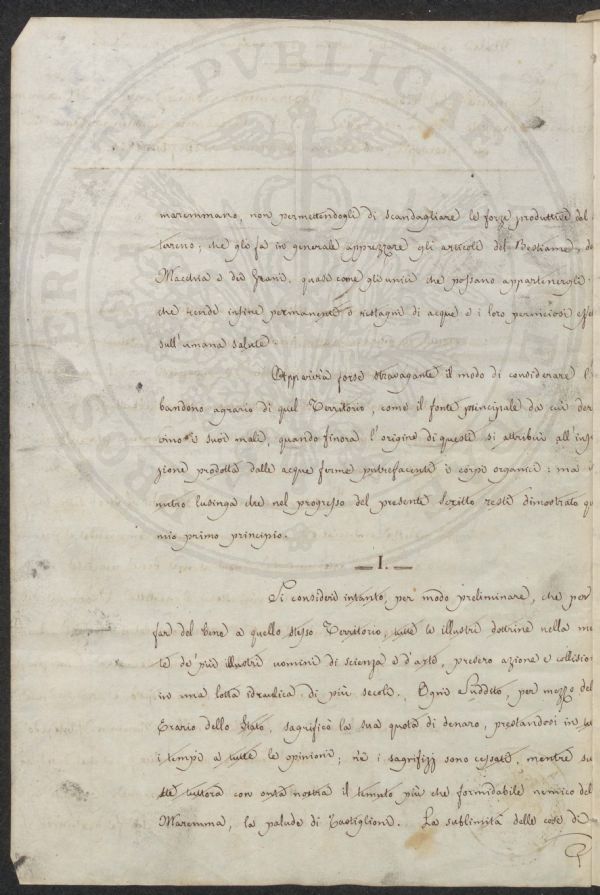 maremmano, non permettendogli di scandagliare le forze produttive del
terreno; che glo fa in generale apprezzare gli articoli del Bestiame, de
Macchia e dei Grani, quasi come gli unici che possano appartenergli.
che rende infine permanenti i ristagni di acque e i loro perniciosi effe
sull'umana salute.
Apparirà forse stravagante il modo di considerare l'
bandono agrario di quel Territorio, come il fonte principale da cui der
vino i suoi mali, quando finora l'origine di questi si attribuì all'inf
zione prodotta dalle acque ferme putrefacenti i corpi organici: ma
nutro lusinga che nel progresso del presente Scritto resti dimostrato qu
mio primo principio.
I.
Si consideri intanto, per modo preliminare, che per
far del bene a quello stesso Territorio, tutte le illustri dottrine nella me
te de' più illustri uomini di scienza e d'arte, presero azione e collisio
in una lotta idraulica di più secoli. Ogni Suddito, per mezzo del
Erario dello Stato, sagrificò la sua quota di denaro, prestandosi in tu
i tempi a tutte le opinioni; nè i sagrifizj sono cessati, mentre su
ste tuttora con onta nostra il temuto più che formidabile nemico del
Maremma, la palude di Castiglioni. La sublimità delle cose di